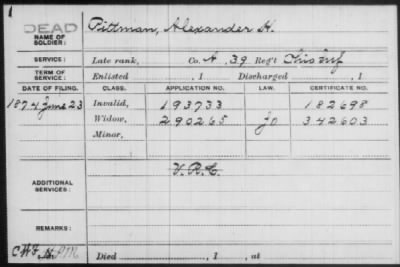 1
DEAD
NAME OF SOLDIER:
Pittman, Alexander H.
SERVICE:
Late rank, Co. A, 39 Reg't Ohio Inf
TERM OF SERVICE:
Enlisted , 1 Discharged , 1
DATE OF FILING. CLASS. APPLICATION NO. LAW. CERTIFICATE NO.
1874 June 23 Invalid, 193733 182698
Widow, 290265 342603
Minor,
ADDITIONAL SERVICES:
V. R. C.
REMARKS:
Died , 1 , at